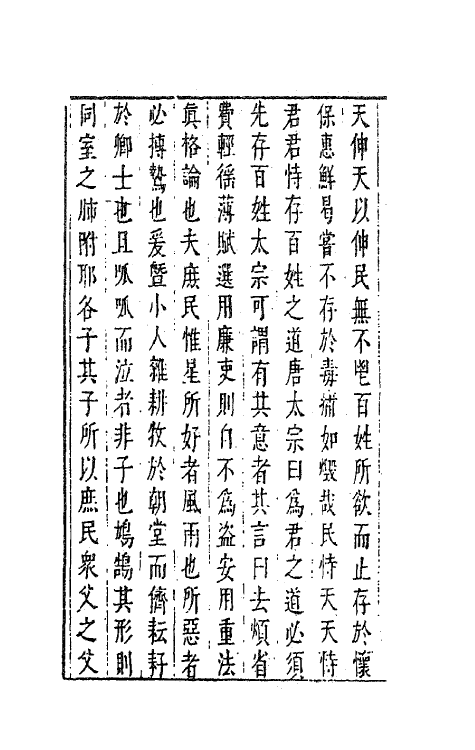 天伸天以伸民無不鬯百姓所欲而止存於懷
保惠鮮曷嘗不存於毒痡如燬哉民恃天天恃
君君恃存百姓之道唐太宗曰爲君之道必須
先存百姓太宗可謂有其意者其言曰去煩省
費輕徭薄賦選用廉吏則自不爲盜安用重法
眞格論也夫庶民惟星所好者風雨也所惡者
必摶鷙也爰曁小人雜耕牧於朝堂而儕耘耔
於卿士也且呱呱而泣者非子也鳩鵠其形則
同室之肺附耶各子其子所以庶民衆父之父